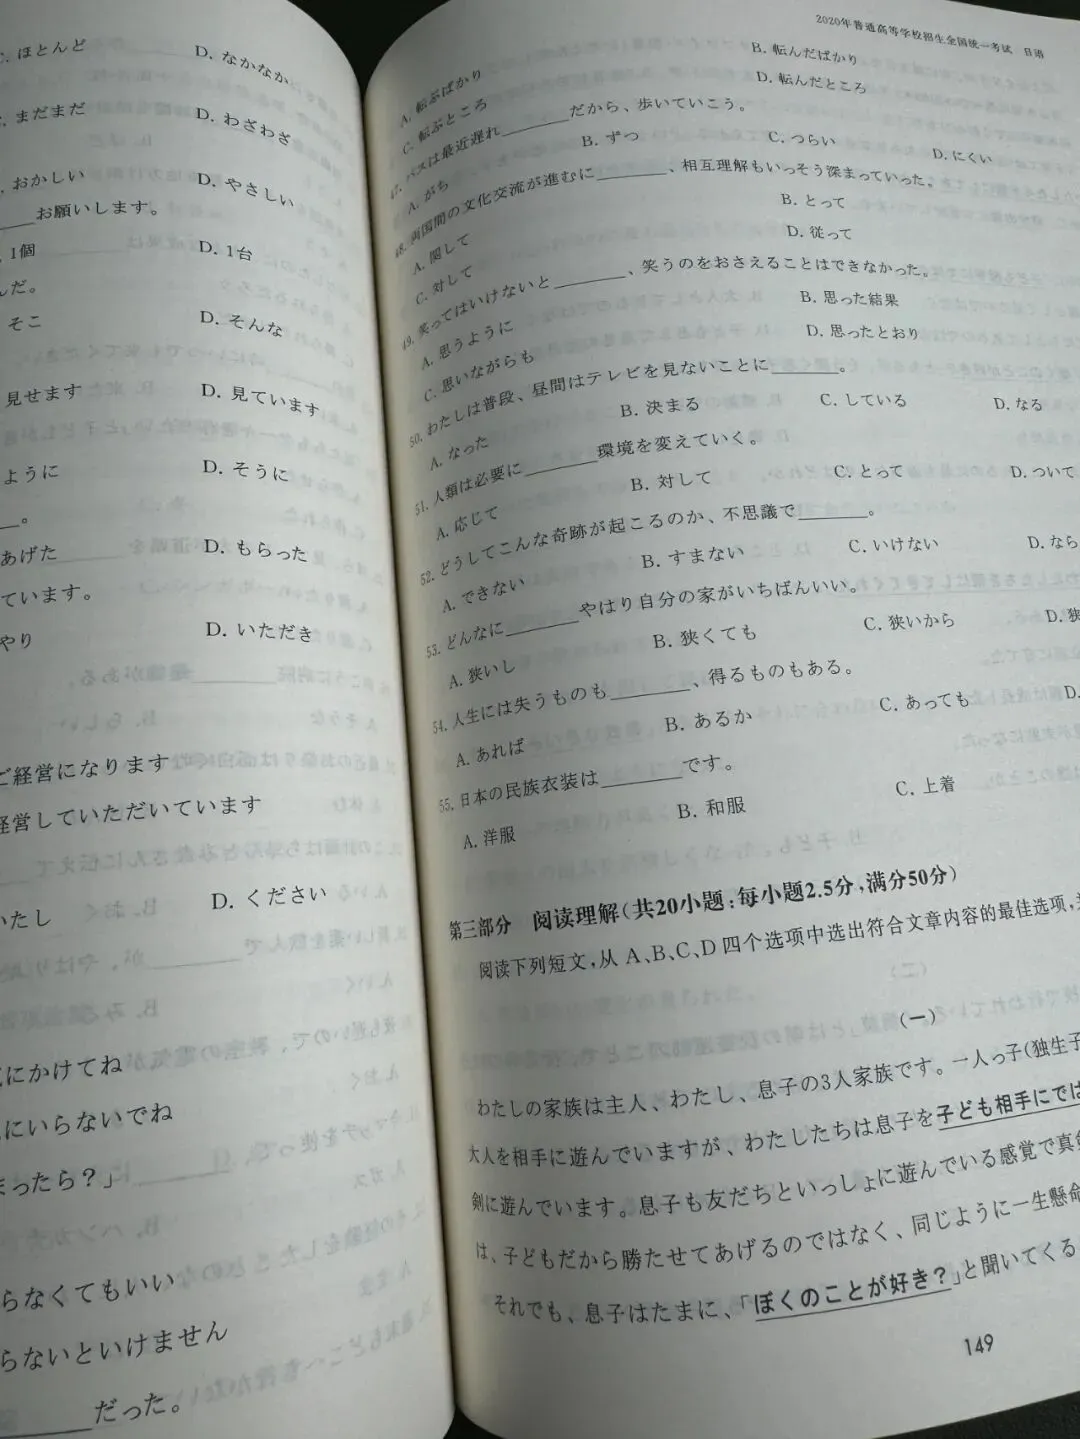 C. ほとんど D. なかなか
まだまだ D. わざわざ
おかしい D. やさしい
お願いします。
1個 D. 1台
んだ。
そこ D. そんな
見せます D. 見ています
ように D. そうに
。
あげた D. もらった
ています。
やり D. いただき
ご経営になります
経営していただいています
いたし D. ください
にかけてね
にいらないでね
まったら？」に
らなくてもいい
らないといけません
だった。
2020年普通高等学校招生全国统一考试 日语
A. 転ぶばかり B. 転んだばかり
C. 転ぶところ D. 転んだところ
47. バスは最近遅れ______だから、歩いていこう。
A. がち B. ずつ C. つらい D. にくい
48. 両国間の文化交流が進むに______、相互理解もいっそう深まっていった。
A. 関して B. とって
C. 対して D. 従って
49. 笑ってはいけないと______、笑うのをおさえることはできなかった。
A. 思うように B. 思った結果
C. 思いながらも D. 思ったとおり
50. わたしは普段、昼間はテレビを見ないことに______。
A. なった B. 決まる C. している D. なる
51. 人類は必要に______環境を変えていく。
A. 応じて B. 対して C. とって D. ついて
52. どうしてこんな奇跡が起こるのか、不思議で______。
A. できない B. すまない C. いけない D. なら
53. どんなに______やはり自分の家がいちばんいい。
A. 狭いし B. 狭くても C. 狭いから D. 狭
54. 人生には失うものも______、得るものもある。
A. あれば B. あるか C. あっても D.
55. 日本の民族衣装は______です。
A. 洋服 B. 和服 C. 上着
第三部分 阅读理解(共20小题:每小题2.5分,满分50分)
阅读下列短文,从 A、B、C、D 四个选项中选出符合文章内容的最佳选项,
(一)
わたしの家族は主人、わたし、息子の3人家族です。一人っ子(独生子
大人を相手に遊んでいますが、わたしたちは息子を子ども相手にでは
剣に遊んでいます。息子も友だちといっしょに遊んでいる感覚で真剣
は、子どもだから勝たせてあげるのではなく、同じように一生懸命
それでも、息子はたまに、「ぼくのことが好き？」と聞いてくる
149